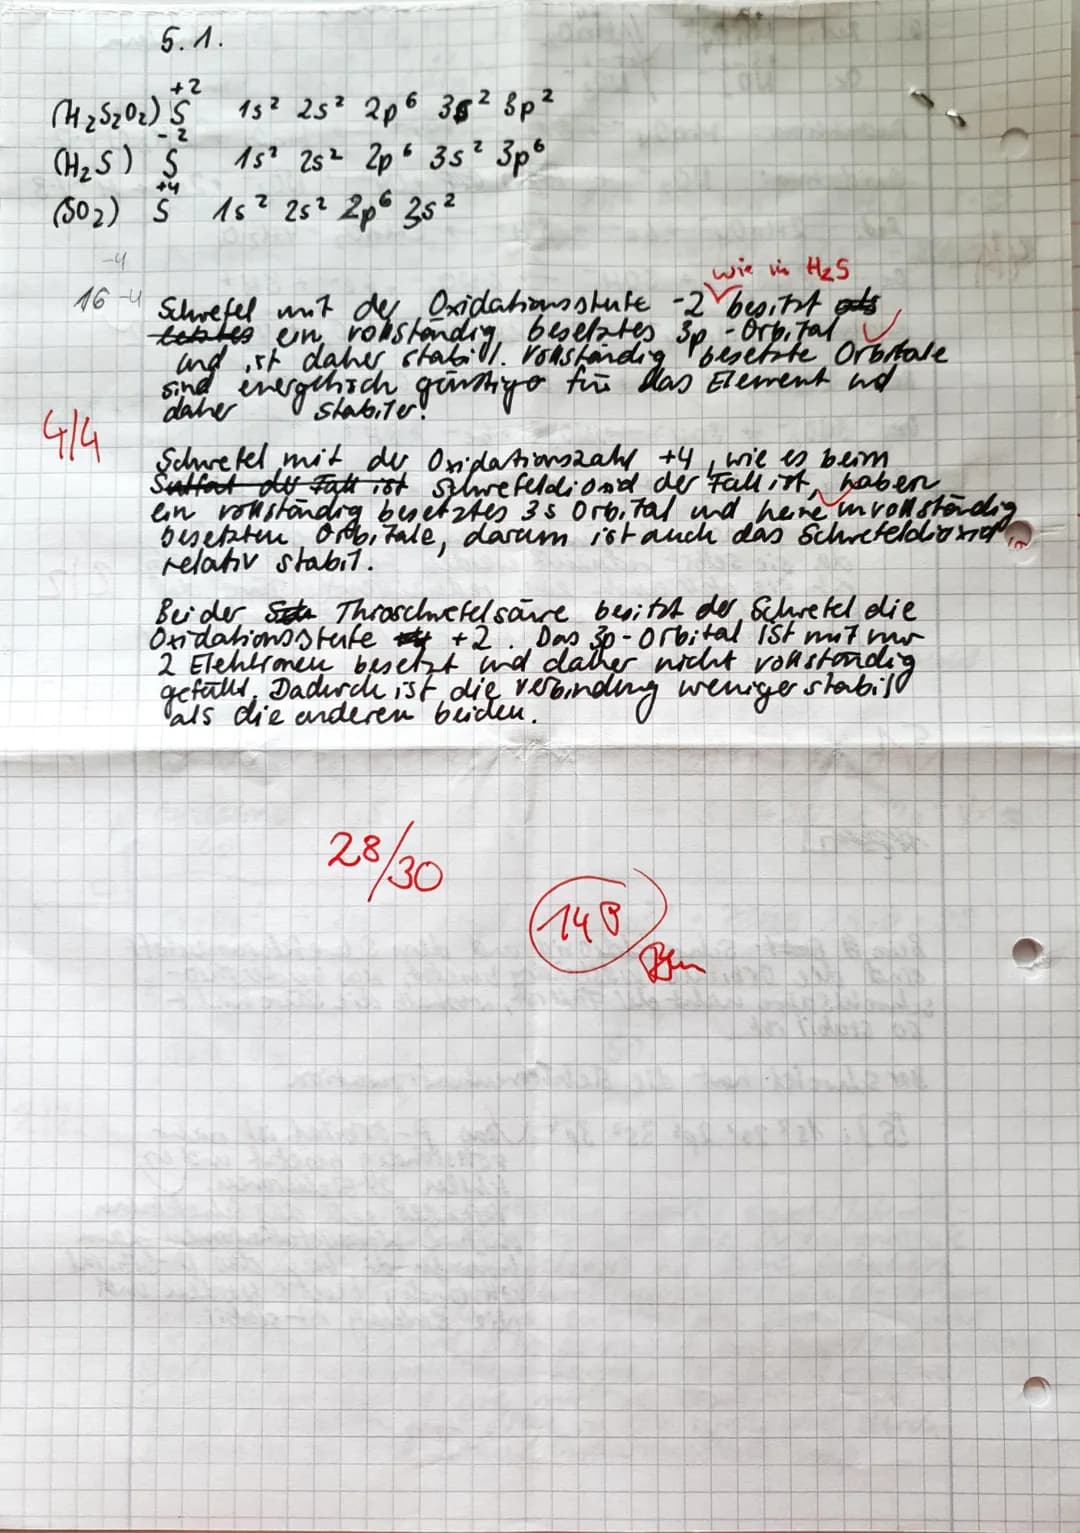 5.1.
(H₂S₂O₂) S⁺² 1s² 2s² 2p⁶ 3s² 3p²
(H₂S) S⁻² 1s² 2s² 2p⁶ 3s² 3p⁶
(SO₂) S⁺⁴ 1s² 2s² 2p⁶ 3s²
-4
16 -4
wie in H₂S
Schwefel mit der Oxidationsstufe -2 besitzt als
letztes ein vollständig besetztes 3p-Orbital
und ist daher stabil. Vollständig besetzte Orbitale
sind energetisch günstiger für das Element und
daher stabiler.
4/4
Schwefel mit der Oxidationszahl +4, wie es beim
Sulfat der Fall ist Schwefeldioxid der Fall ist, haben
ein vollständig besetztes 3s Orbital und keine unvollständig
besetzten Orbitale, darum ist auch das Schwefeldioxid
relativ stabil.
Bei der Thioschwefelsäure besitzt der Schwefel die
Oxidationsstufe +2. Das 3p-Orbital ist mit nur
2 Elektronen besetzt und daher nicht vollständig
gefüllt. Dadurch ist die Verbindung weniger stabil
als die anderen beiden.
28/30
14 P